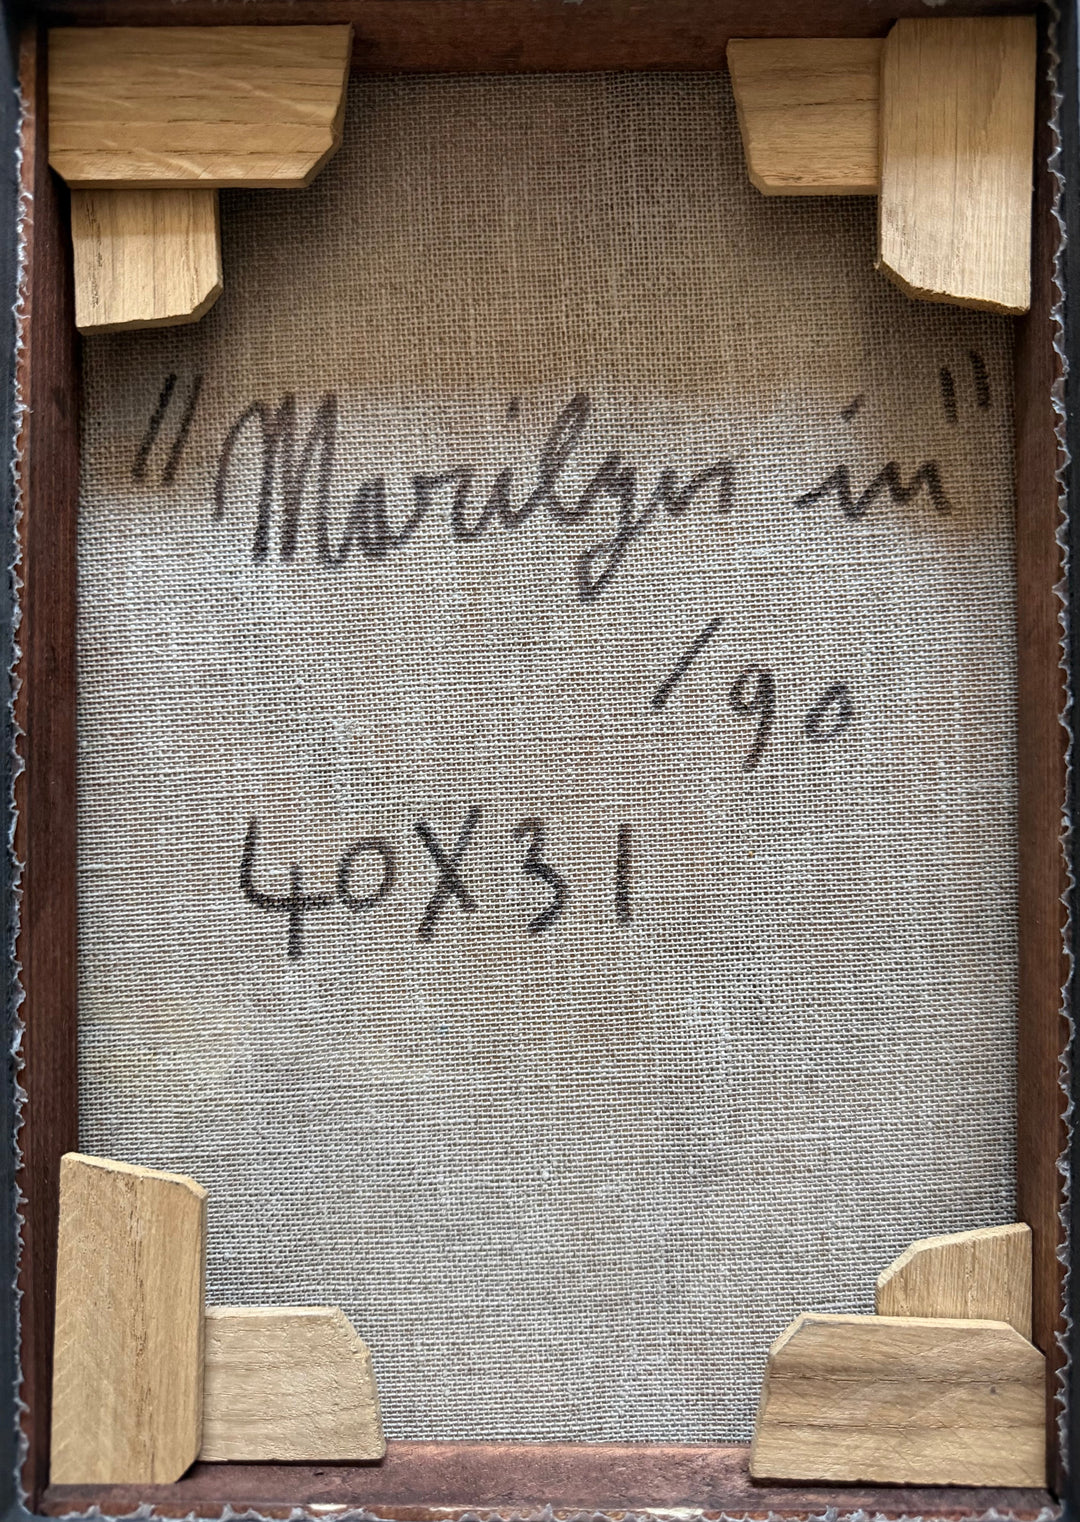 "Marilyn in"
'90
40X31